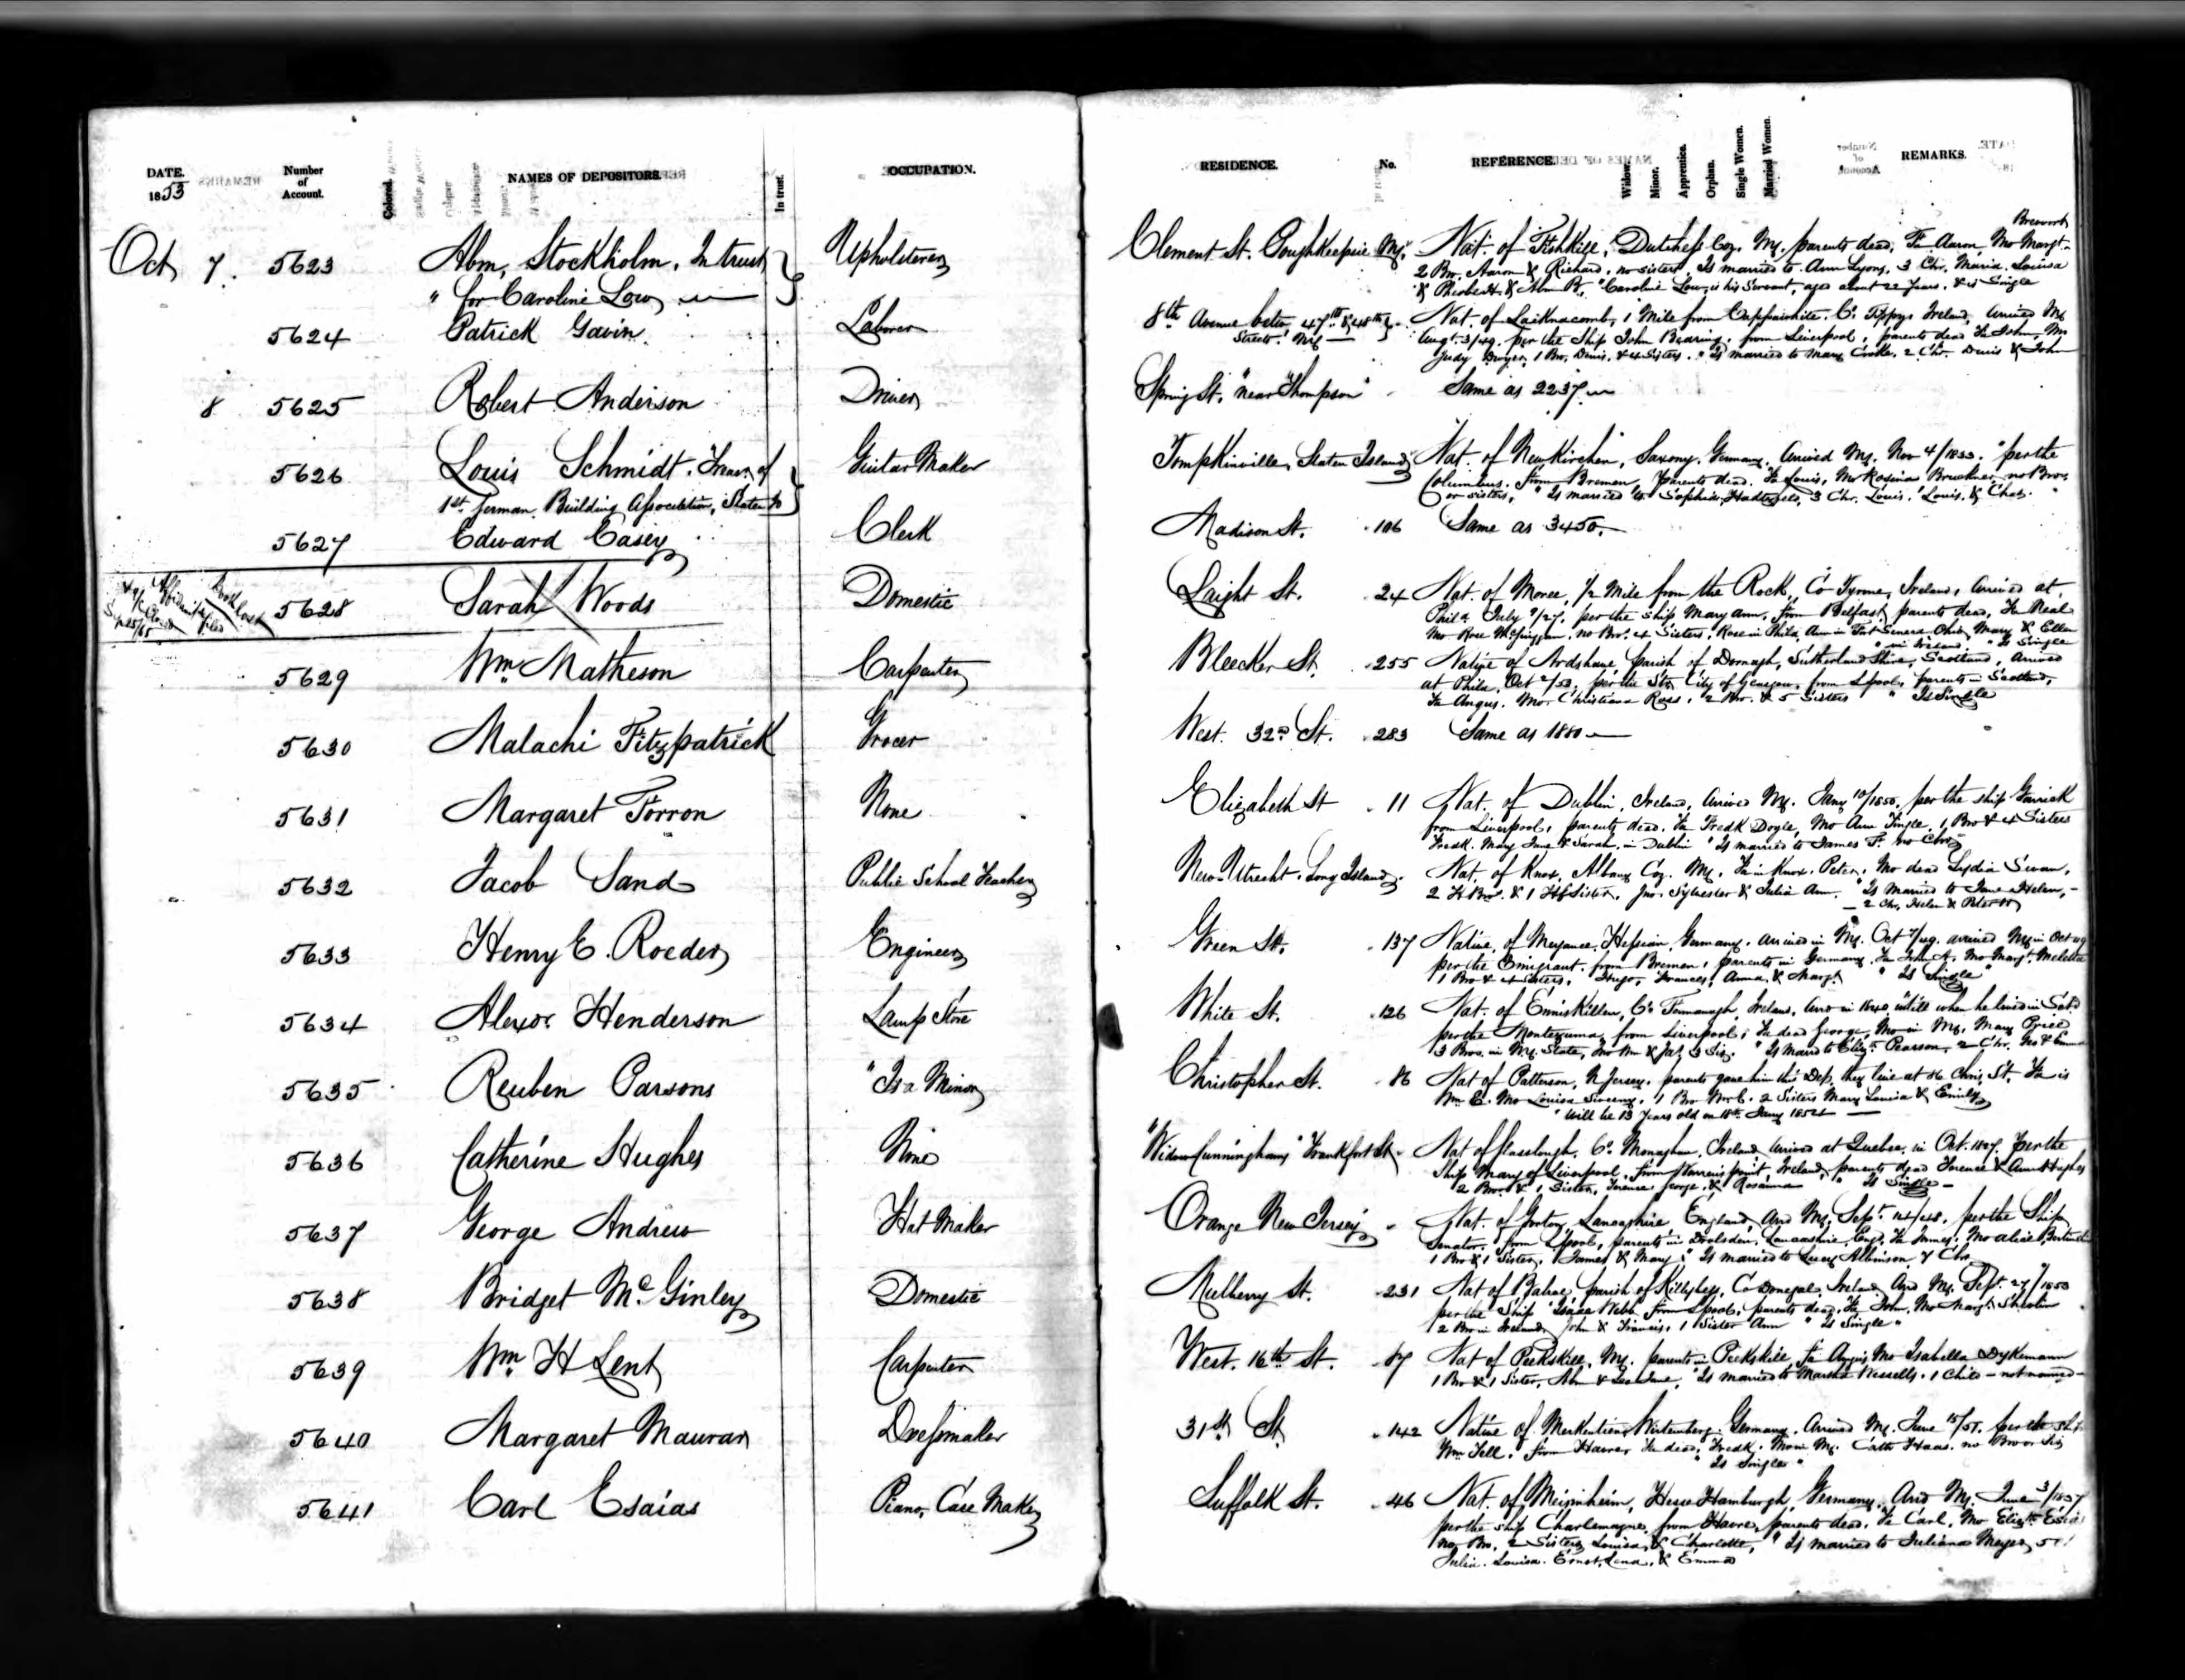 DATE. Number of Account. Colored. NAMES OF DEPOSITORS. In trust. OCCUPATION. RESIDENCE. No. REFERENCE. Widow. Minor. Apprentice. Orphan. Single Women. Married Women. REMARKS.
1853
Oct 7. 5623 Abm. Stockholm. In trust Upholsterer Clement St. Poughkeepsie NY. Nat. of Fishkill, Dutchess Coy. NY. parents dead, Fa Aaron Mo Margt. Brevoort
" for Caroline Low 2 Bro. Aaron & Richard, no sisters. Is married to Ann Lyons, 3 Chr. Maria Louisa
& Phoebe H. & Abm B. "Caroline Low, is his Servant, aged about 22 Years, & is Single
5624 Patrick Gavin Laborer 8th Avenue betw. 47th & 48th Nat. of 1 Mile from Cappawhite, Co. Tippy. Ireland, arrived NY
Streets. NY Augt. 3/49. per the Ship John Bearing, from Liverpool, parents dead Fa John, Mo
Judy Dwyer, 1 Bro. Denis, & 4 Sisters. "Is married to Mary Cooke. 2 Chr. Denis & John
8 5625 Robert Anderson Driver Spring St. "near Thompson" Same as 2237
5626 Louis Schmidt. Treasr. of Guitar Maker Tompkinville, Staten Island Nat. of Neukirchen, Saxony, Germany. Arrived NY. Nov 4/1833. "per the
1st German Building Association, Staten Is Columbus. from Bremen, Parents dead. Fa Louis, Mo Rosina Bruckner, no Bros.
or sisters, "Is married to Sophia 3 Chr. Louis. Louis. & Chas.
5627 Edward Casey Clerk Madison St. 106 Same as 3450.
A/c Closed Sep 25/65 Affidavit filed Book Lost 5628 Sarah Woods Domestic Laight St. 24 Nat. of Moree, 1/2 Mile from the Rock, Co Tyrone, Ireland, arrived at
Phila July 9/27, per the ship Mary Ann, from Belfast, parents dead, Fa Neal
Mo Rose no Bro. 4 Sisters, Rose in Phila, Ann in Ohio, Mary & Ellen
in Ireland "Is Single
5629 Wm. Matheson Carpenter Bleecker St. 255 Native of Ardshave, parish of Dornagh, Sutherland Shire, Scotland, Arrived
at Phila, Oct 2/53, per the Str. City of Glasgow, from Lpool, parents in Scotland,
Fa Angus. Mo. Christiana Ross, 2 Bro. & 5 Sisters " Is Single
5630 Malachi Fitzpatrick Grocer West. 32d St. 283 Same as 1880
5631 Margaret Forron None Elizabeth St 11 Nat. of Dublin, Ireland, Arrived NY. Jany 10/1850. per the ship Garrick
from Liverpool, parents dead. Fa Fredk Doyle, Mo Ann Tingle, 1 Bro & 4 Sisters
Fredk. Mary Jane & Sarah, in Dublin "Is married to James F. no Chr
5632 Jacob Sand Public School Teacher New Utrecht. Long Island. Nat. of Knox, Albany Coy. NY. Fa in Knox. Peter, Mo dead Lydia Swan,
2 H Bro. & 1 Hf Sister. Jno. Sylvester & Julia Ann. "Is Married to Jane Helen,
2 Chr. Helen & Peter
5633 Henry E. Roeder Engineer Green St. 137 Native of Hessian Germany. arrived in NY. Oct 7/49. arrived NY in Oct 49
per the Emigrant. from Bremen, parents in Germany. Fa John A. Mo Margt.
1 Bro & 4 sisters, Hugo, Frances, Anna, & Margt. "Is Single"
5634 Alexr. Henderson Lamp Store White St. 126 Nat. of Enniskillen, Co. Fermanagh, Ireland, Arrd in 1840 until when he lived in
per the Montezuma, from Liverpool, Fa dead George, Mo in NY. Mary Price
3 Bros. in NY. State, Wm & Jas, 3 Sis. "Is Married to Elizth. Pearson, 2 Chr. Geo & Emma
5635 Reuben Parsons "Is a Minor Christopher St. 86 Nat of Patterson, N Jersey. parents gave him this Dep. they live at 86 Chris. St. Fa is
Wm E. Mo Louisa Sweeny. 1 Bro Wm C. 2 Sisters Mary Louisa & Emily
"Will be 13 Years old on 18th Jany 1854
5636 Catherine Hughes None "Widow Cunninghams" Frankfort St. Nat of Glasslough, Co. Monaghan, Ireland, Arrived at Quebec, in Oct. 1847. per the
Ship Mary of Liverpool, from Warrens point, Ireland, parents dead Terence & Ann Hughes
2 Bros & 1 Sister, Terence, George, & Rosanna " Is Single
5637 George Andrew Hat Maker Orange New Jersey Nat. of Gorton, Lancashire England, Arrd NY. Sept. 14/48. per the Ship
Senator. from Lpool, parents in Lancashire, Engd. Fa James. Mo Alice
1 Bro & 1 Sister, James & Mary, "Is married to Lucy Albinson, 7 Chr.
5638 Bridget McGinley Domestic Mulberry St. 231 Nat of parish of Killybegs, Co Donegal, Ireland, Arrd NY. Sept. 27/1850
per the Ship Isaac Webb from Lpool, parents dead, Fa John, Mo Margt.
2 Bro in Ireland, John & Francis, 1 Sister Ann "Is Single"
5639 Wm H Lent Carpenter West. 16th St. 67 Nat of Peekskill, NY. parents in Peekskill, Fa Angus Mo Isabella Dykemann
1 Bro & 1 Sister, Abm & "Is married to Martha Wessells. 1 Child - not named -
5640 Margaret Mauran Dressmaker 31st St. 142 Native of Wirtemberg Germany, Arrived NY. June 15/51. per the ship
Wm Tell. from Havre, Fa dead, Fredk. Mo in NY. Cath Haas. no Bro or Sis
"Is Single"
5641 Carl Esaias Piano, Case Maker Suffolk St. 46 Nat. of Meisinheim, Hesse Hamburgh, Germany. Arrd NY. June 3/1837
per the ship Charlemagne, from Havre, parents dead. Fa Carl. Mo Elizth.
no Bro, 2 Sisters Louisa, & Charlotte, "Is married to Juliana Meyer, 5
Julia. Louisa. Ernst, Lena, & Emma